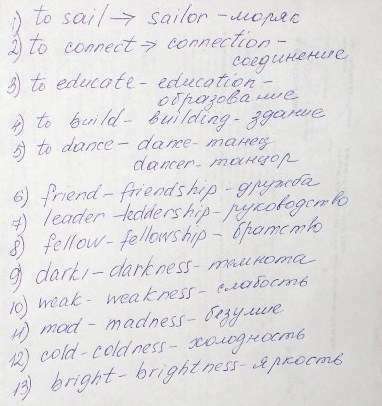 1) to sail → sailor - моряк
2) to connect → connection -
соединение
3) to educate - education -
образование
4) to build - building - здание
5) to dance - dance - танец
dancer - танцор
6) friend - friendship - дружба
7) leader - leddership - руководство
8) fellow - fellowship - братство
9) dark - darkness - темнота
10) weak - weakness - слабость
11) mad - madness - безумие
12) cold - coldness - холодность
13) bright - brightness - яркость